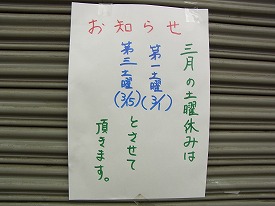 お知らせ
三月の土曜休みは
第一土曜(3/1)
第三土曜(3/15)
とさせて
頂きます。